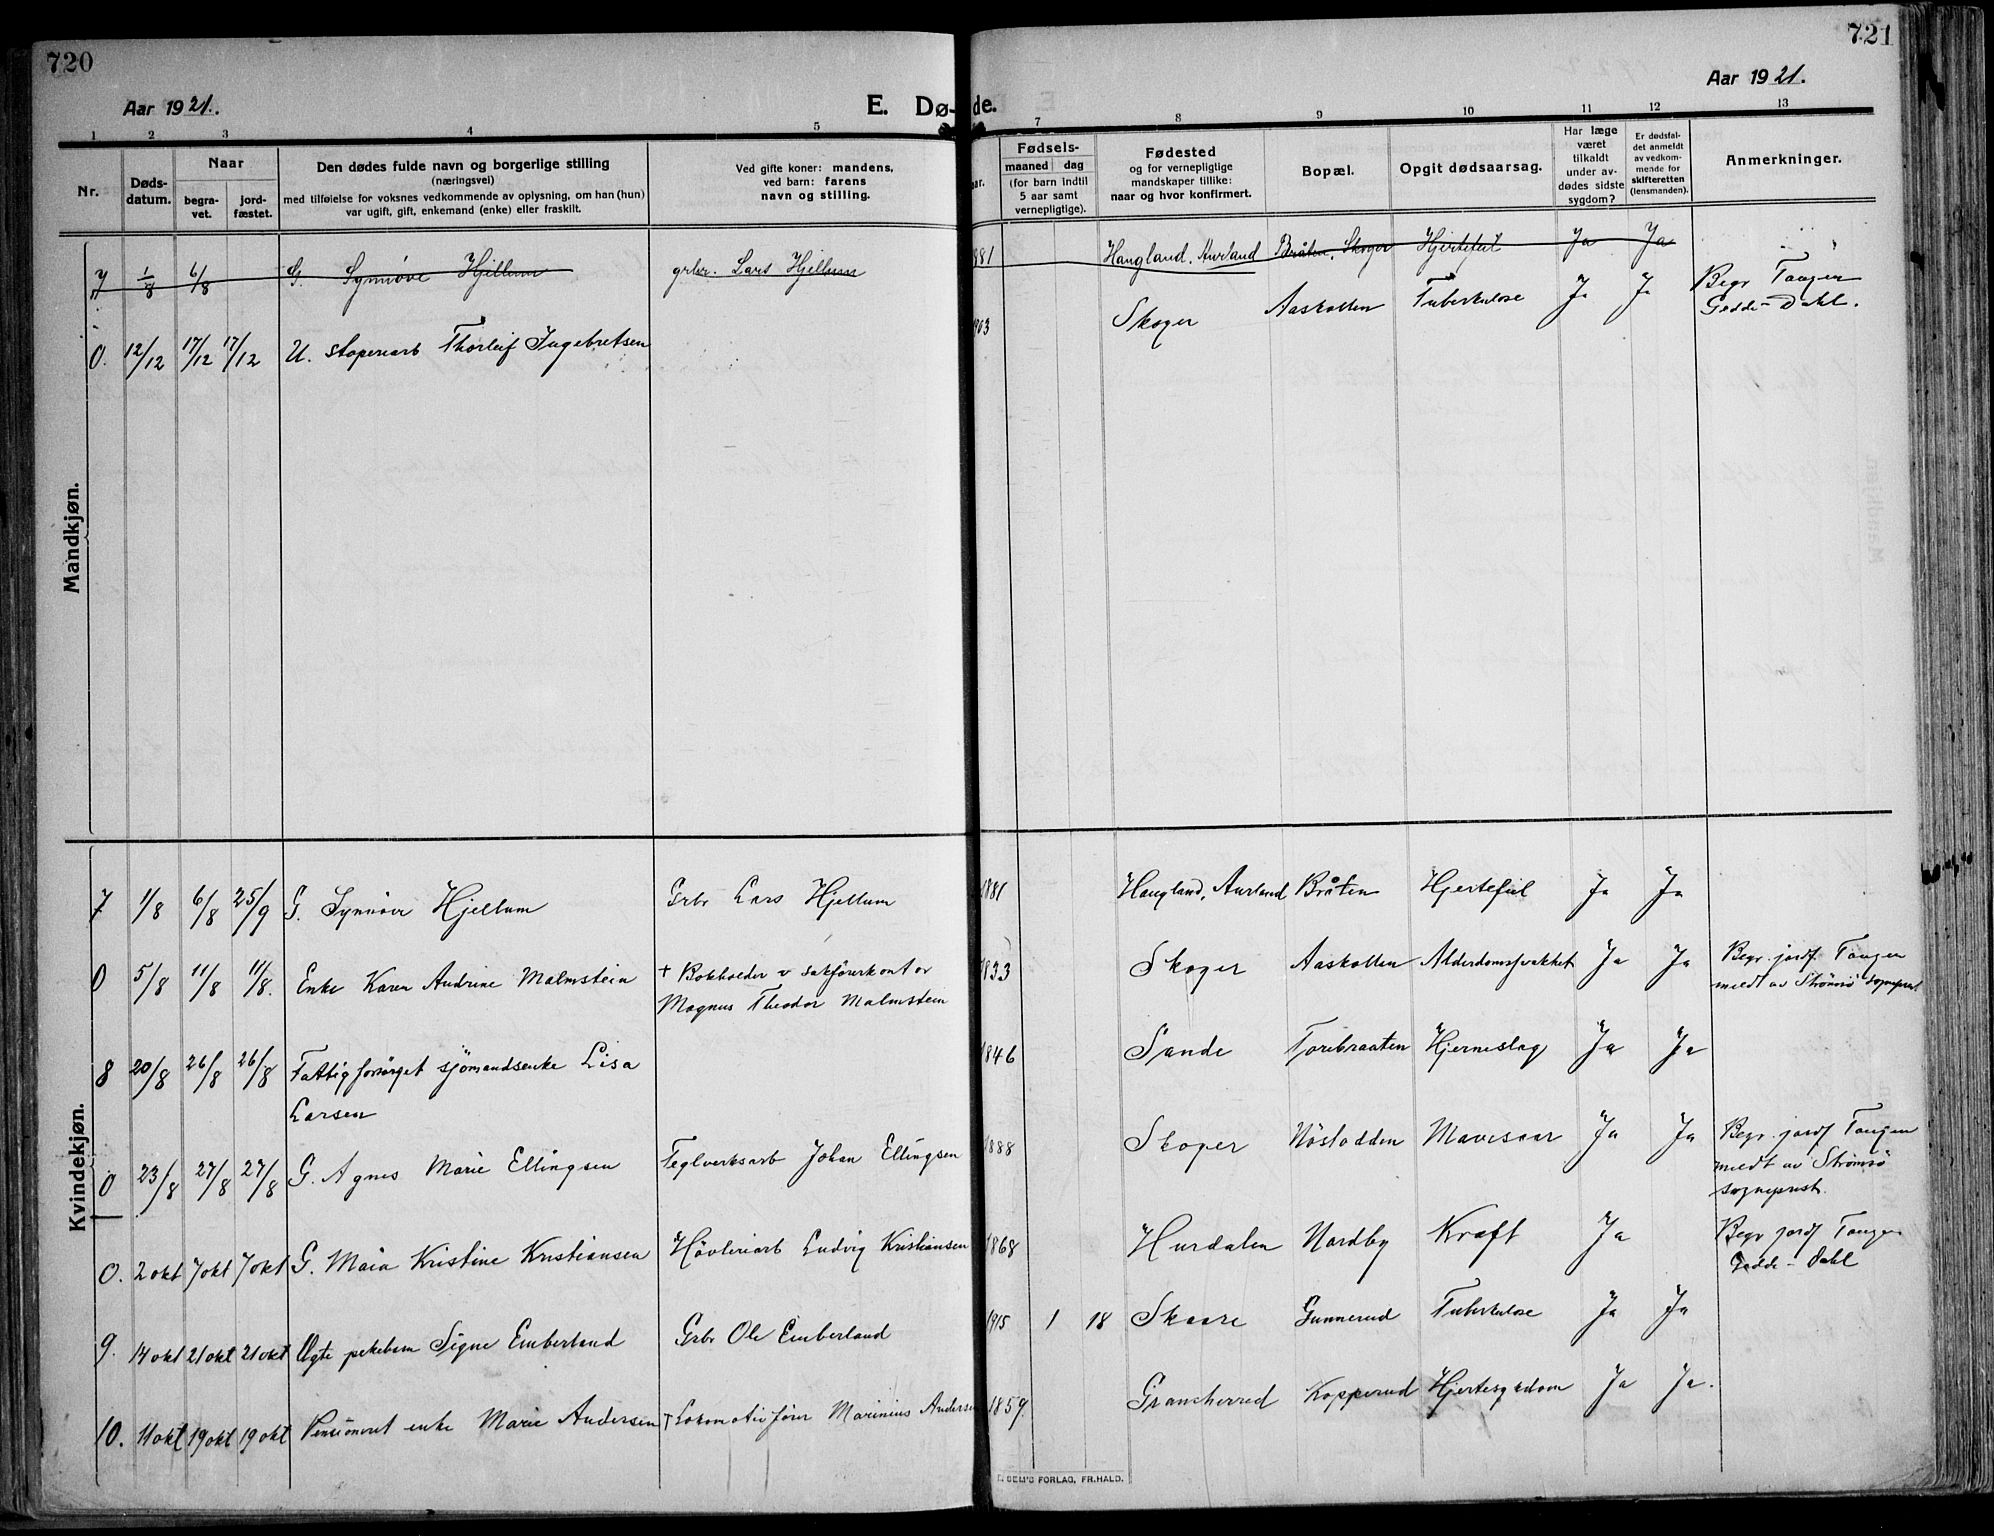 720
721
Aar 1921.
E. Dø-
de.
Aar 1921.
1 2 3 4 5 7 8 9 10 11 12 13
Nr.
Døds-
datum.
Naar
begra-
vet.
jord-
fæstet.
Den dødes fulde navn og borgerlige stilling
(næringsvei)
med tilføielse for voksnes vedkommende av oplysning, om han (hun)
var ugift, gift, enkemand (enke) eller fraskilt.
Ved gifte koner: mandens,
ved barn: farens
navn og stilling.
ar.
Fødsels-
maaned dag
(for barn indtil
5 aar samt
vernepligtige).
Fødested
og for vernepligtige
mandskaper tillike:
naar og hvor konfirmert.
Bopæl.
Opgit dødsaarsag.
Har læge
været
tilkaldt
under av-
dødes sidste
sygdom?
Er dødsfal-
det anmeldt
av vedkom-
mende for
skifteretten
(lensmanden).
Anmerkninger.
Mandkjøn.
7 1/8 6/8 G. Synnøve Hjellum grbr. Lars Hjellum 881 Haugland, Aurland Bråten, Skoger Hjertefeil Ja Ja
0. 12/12 17/12 17/12 U. stoperiarb Thorleif Ingebretsen 903 Skoger Aaskollen Tuberkulose Ja Ja Begr Tangen
Gedde-Dahl.
Kvindekjøn.
7 1/8 6/8 25/9 G. Synnøve Hjellum Grbr Lars Hjellum 1881 Haugland, Aurland Bråten Hjertefeil Ja Ja
0 5/8 11/8 11/8. Enke Karen Andrine Malmstein + Bokholder v sakførerkontor
Magnus Theodor Malmstein 1833 Skoger Aaskollen Alderdomssvakhet Ja Ja Begr. jordf. Tangen
meldt av Strømsø sogneprest
8 20/8 26/8 26/8 Fattigforsörget sjömandsenke Lisa
Larsen 1846 Sande Torebraaten Hjerneslag Ja Ja
0 23/8 27/8 27/8 G. Agnes Marie Ellingsen Teglverksarb Johan Ellingsen 1888 Skoger Nöstodden Mavesaar Ja Ja Begr. jordf Tangen
meldt av Strømsö
sogneprest.
0. 2 okt 7 okt 7 okt G. Maia Kristine Kristiansen Hövleriarb Ludvig Kristiansen 1868 Hurdalen Nordby Kræft Ja Begr jordf Tangen
Gedde-Dahl
9. 14 okt 21 okt 21 okt Ægte pikebarn Signe Emberland Grbr Ole Emberland 1915 1 18 Skaare Gunnerud Tuberkulose Ja Ja
10. 11 okt 19 okt 19 okt Pensioneret enke Marie Andersen † Lokomotivfører Marinius Anderse 1859. Gransherred Kopperud Hjertesygdom Ja Ja.
SEM'S FORLAG, FR.HALD.